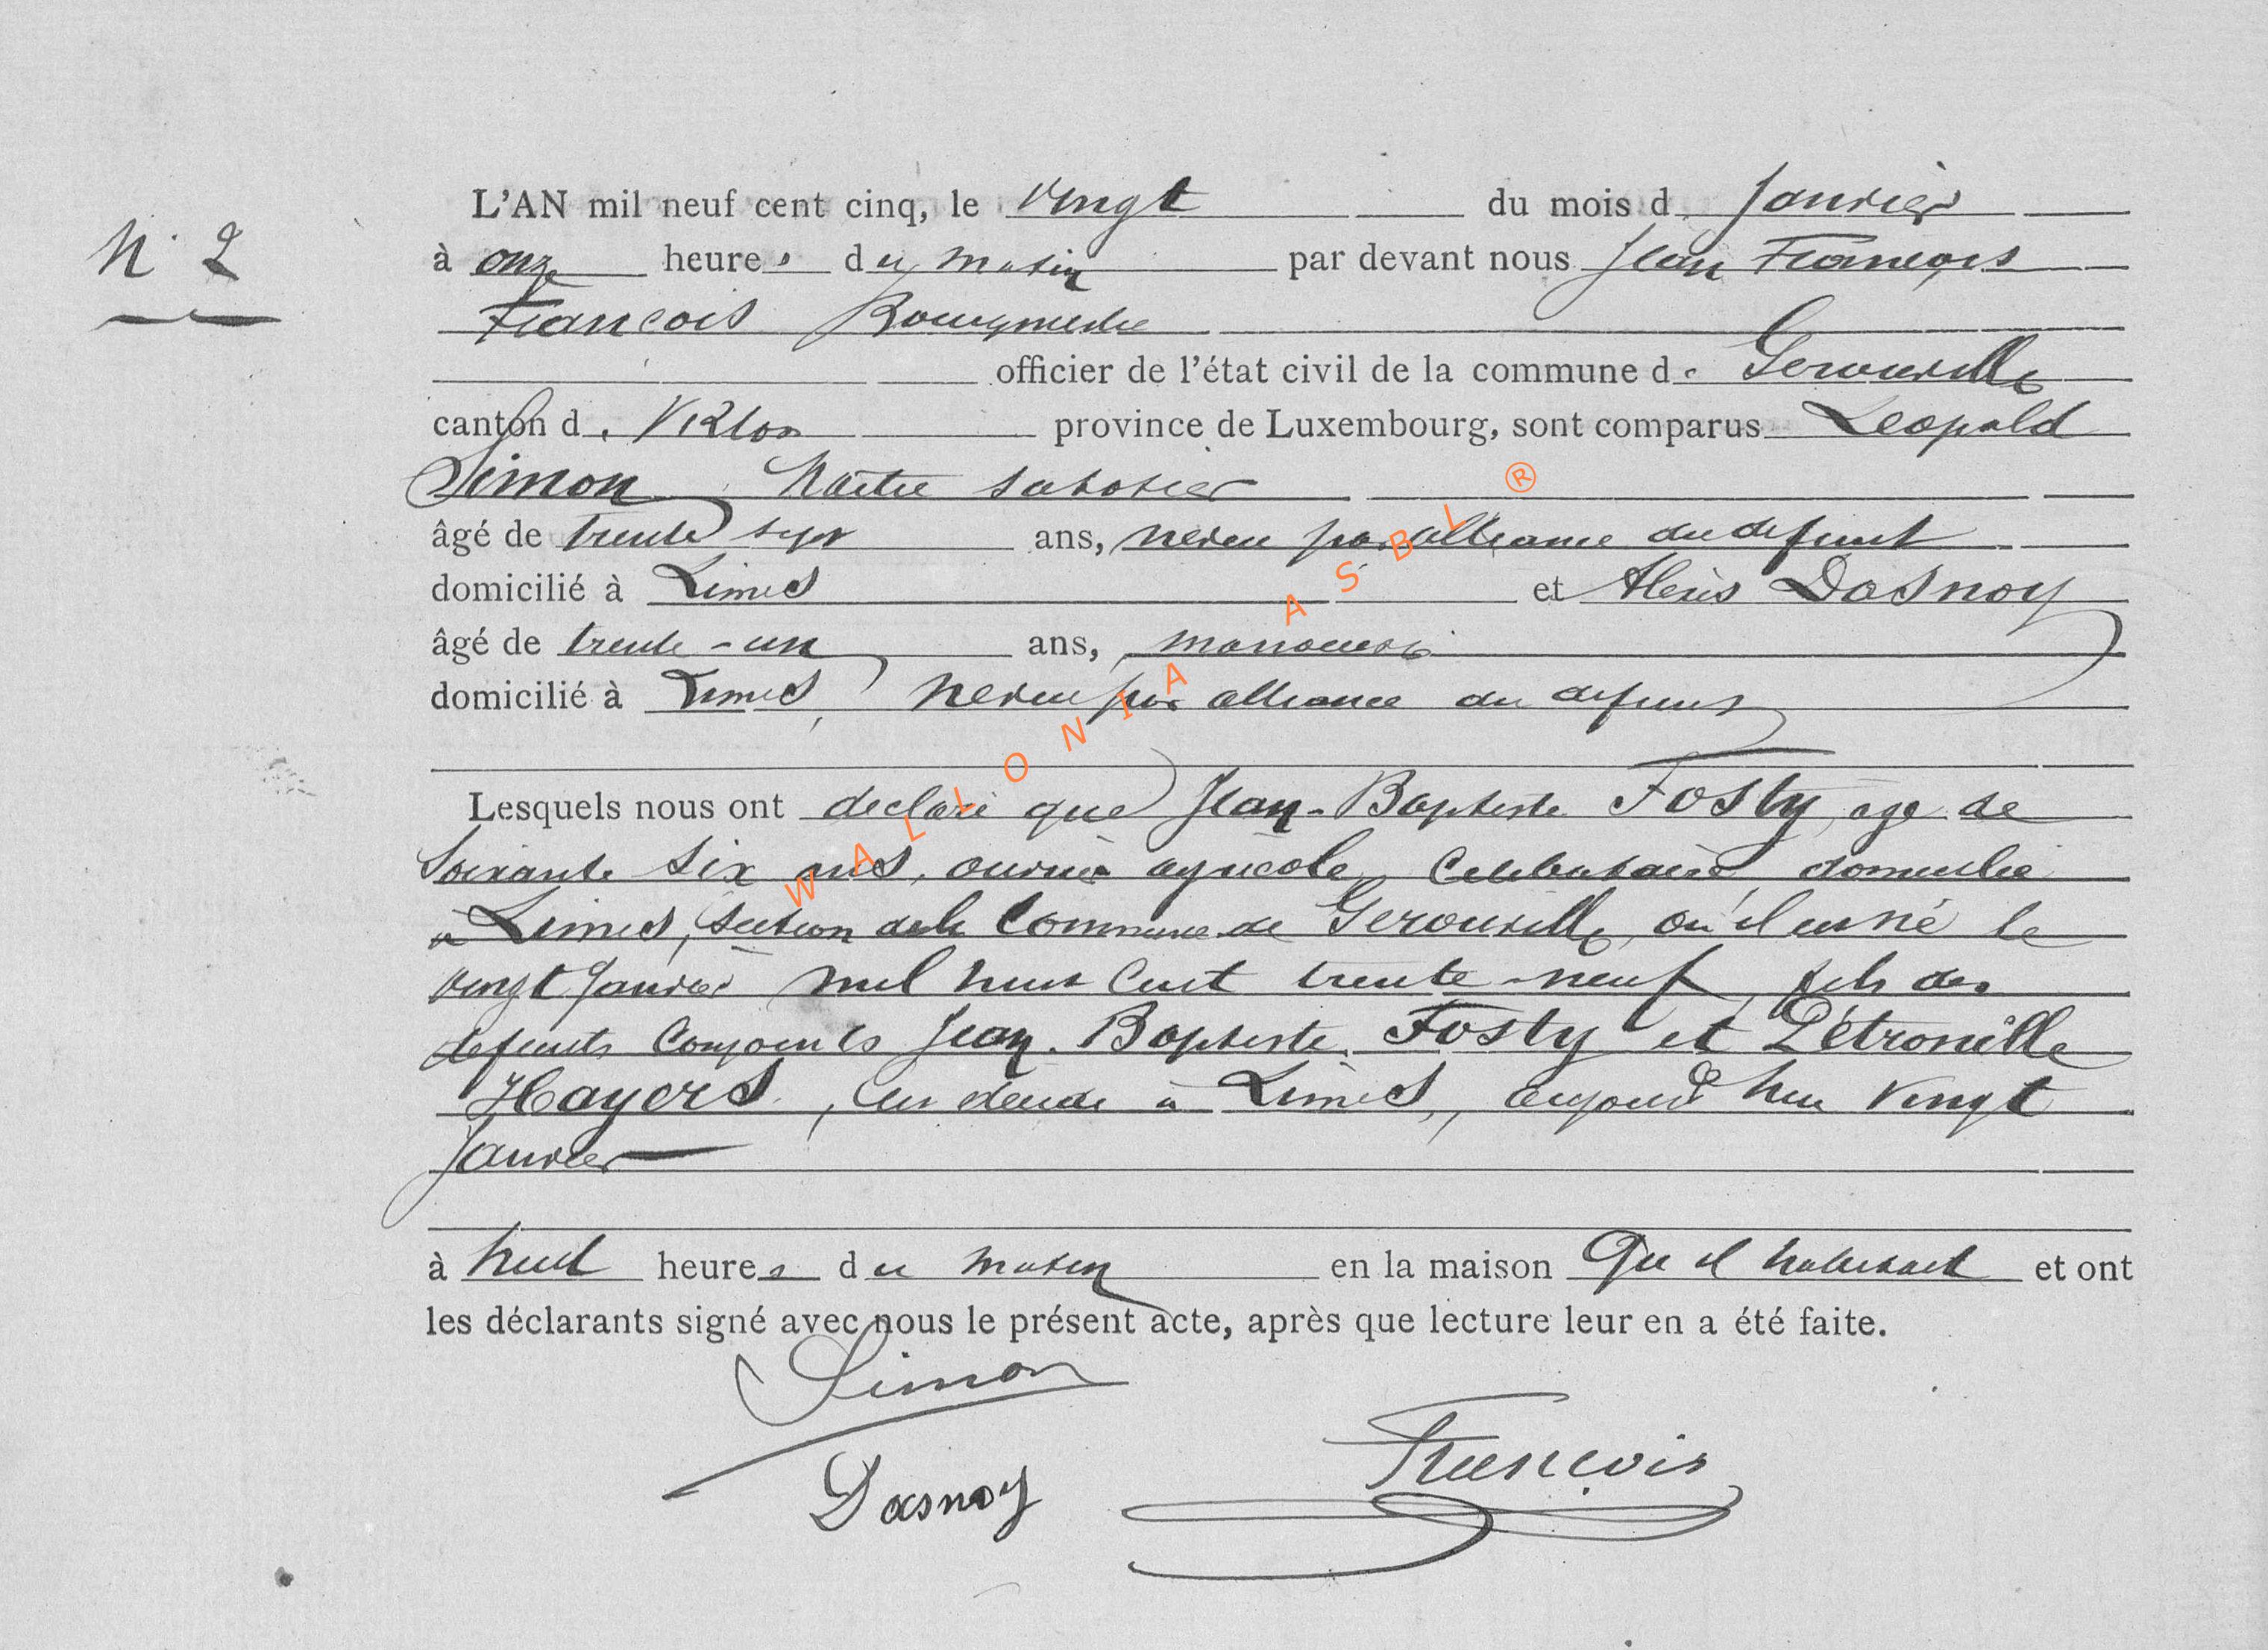 N° 2
L'AN mil neuf cent cinq, le vingt du mois de Janvier
à onze heures du matin par devant nous Jean François
François Bourgmestre
officier de l'état civil de la commune de Gerouville
canton de Virton province de Luxembourg, sont comparus Leopold
Simon Maitre sabotier
âgé de trente sept ans, neveu par alliance du defunt
domicilié à Limes et Alexis Dasnoy
âgé de trente-un ans, manoeuvre
domicilié à Limes, neveu par alliance du defunt
Lesquels nous ont declaré que Jean-Baptiste Fosty, age de
soixante six ans, ouvrier agricole, celibataire domicilié
à Limes, section de la Commune de Gerouville, où il est né le
vingt Janvier mil huit cent trente-neuf, fils des
defunts conjoints Jean-Baptiste Fosty et Pétronille
Hayers, est decedé à Limes, aujourd'hui vingt
Janvier
à huit heures du matin en la maison qu'il habitait et ont
les déclarants signé avec nous le présent acte, après que lecture leur en a été faite.
Simon
François
Dasnoy
WALLONIA ASBL ®